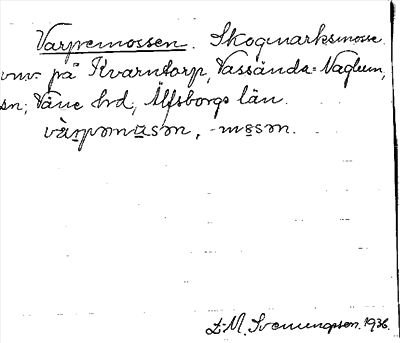 Varpemossen. Skogmarksmosse
vnv. på Kvarntorp, Vassända-Naglum,
sn; Väne hd, Älfsborgs län.
vàrpəmåsən, -məsən.
D. M. Svenungsson. 1936.